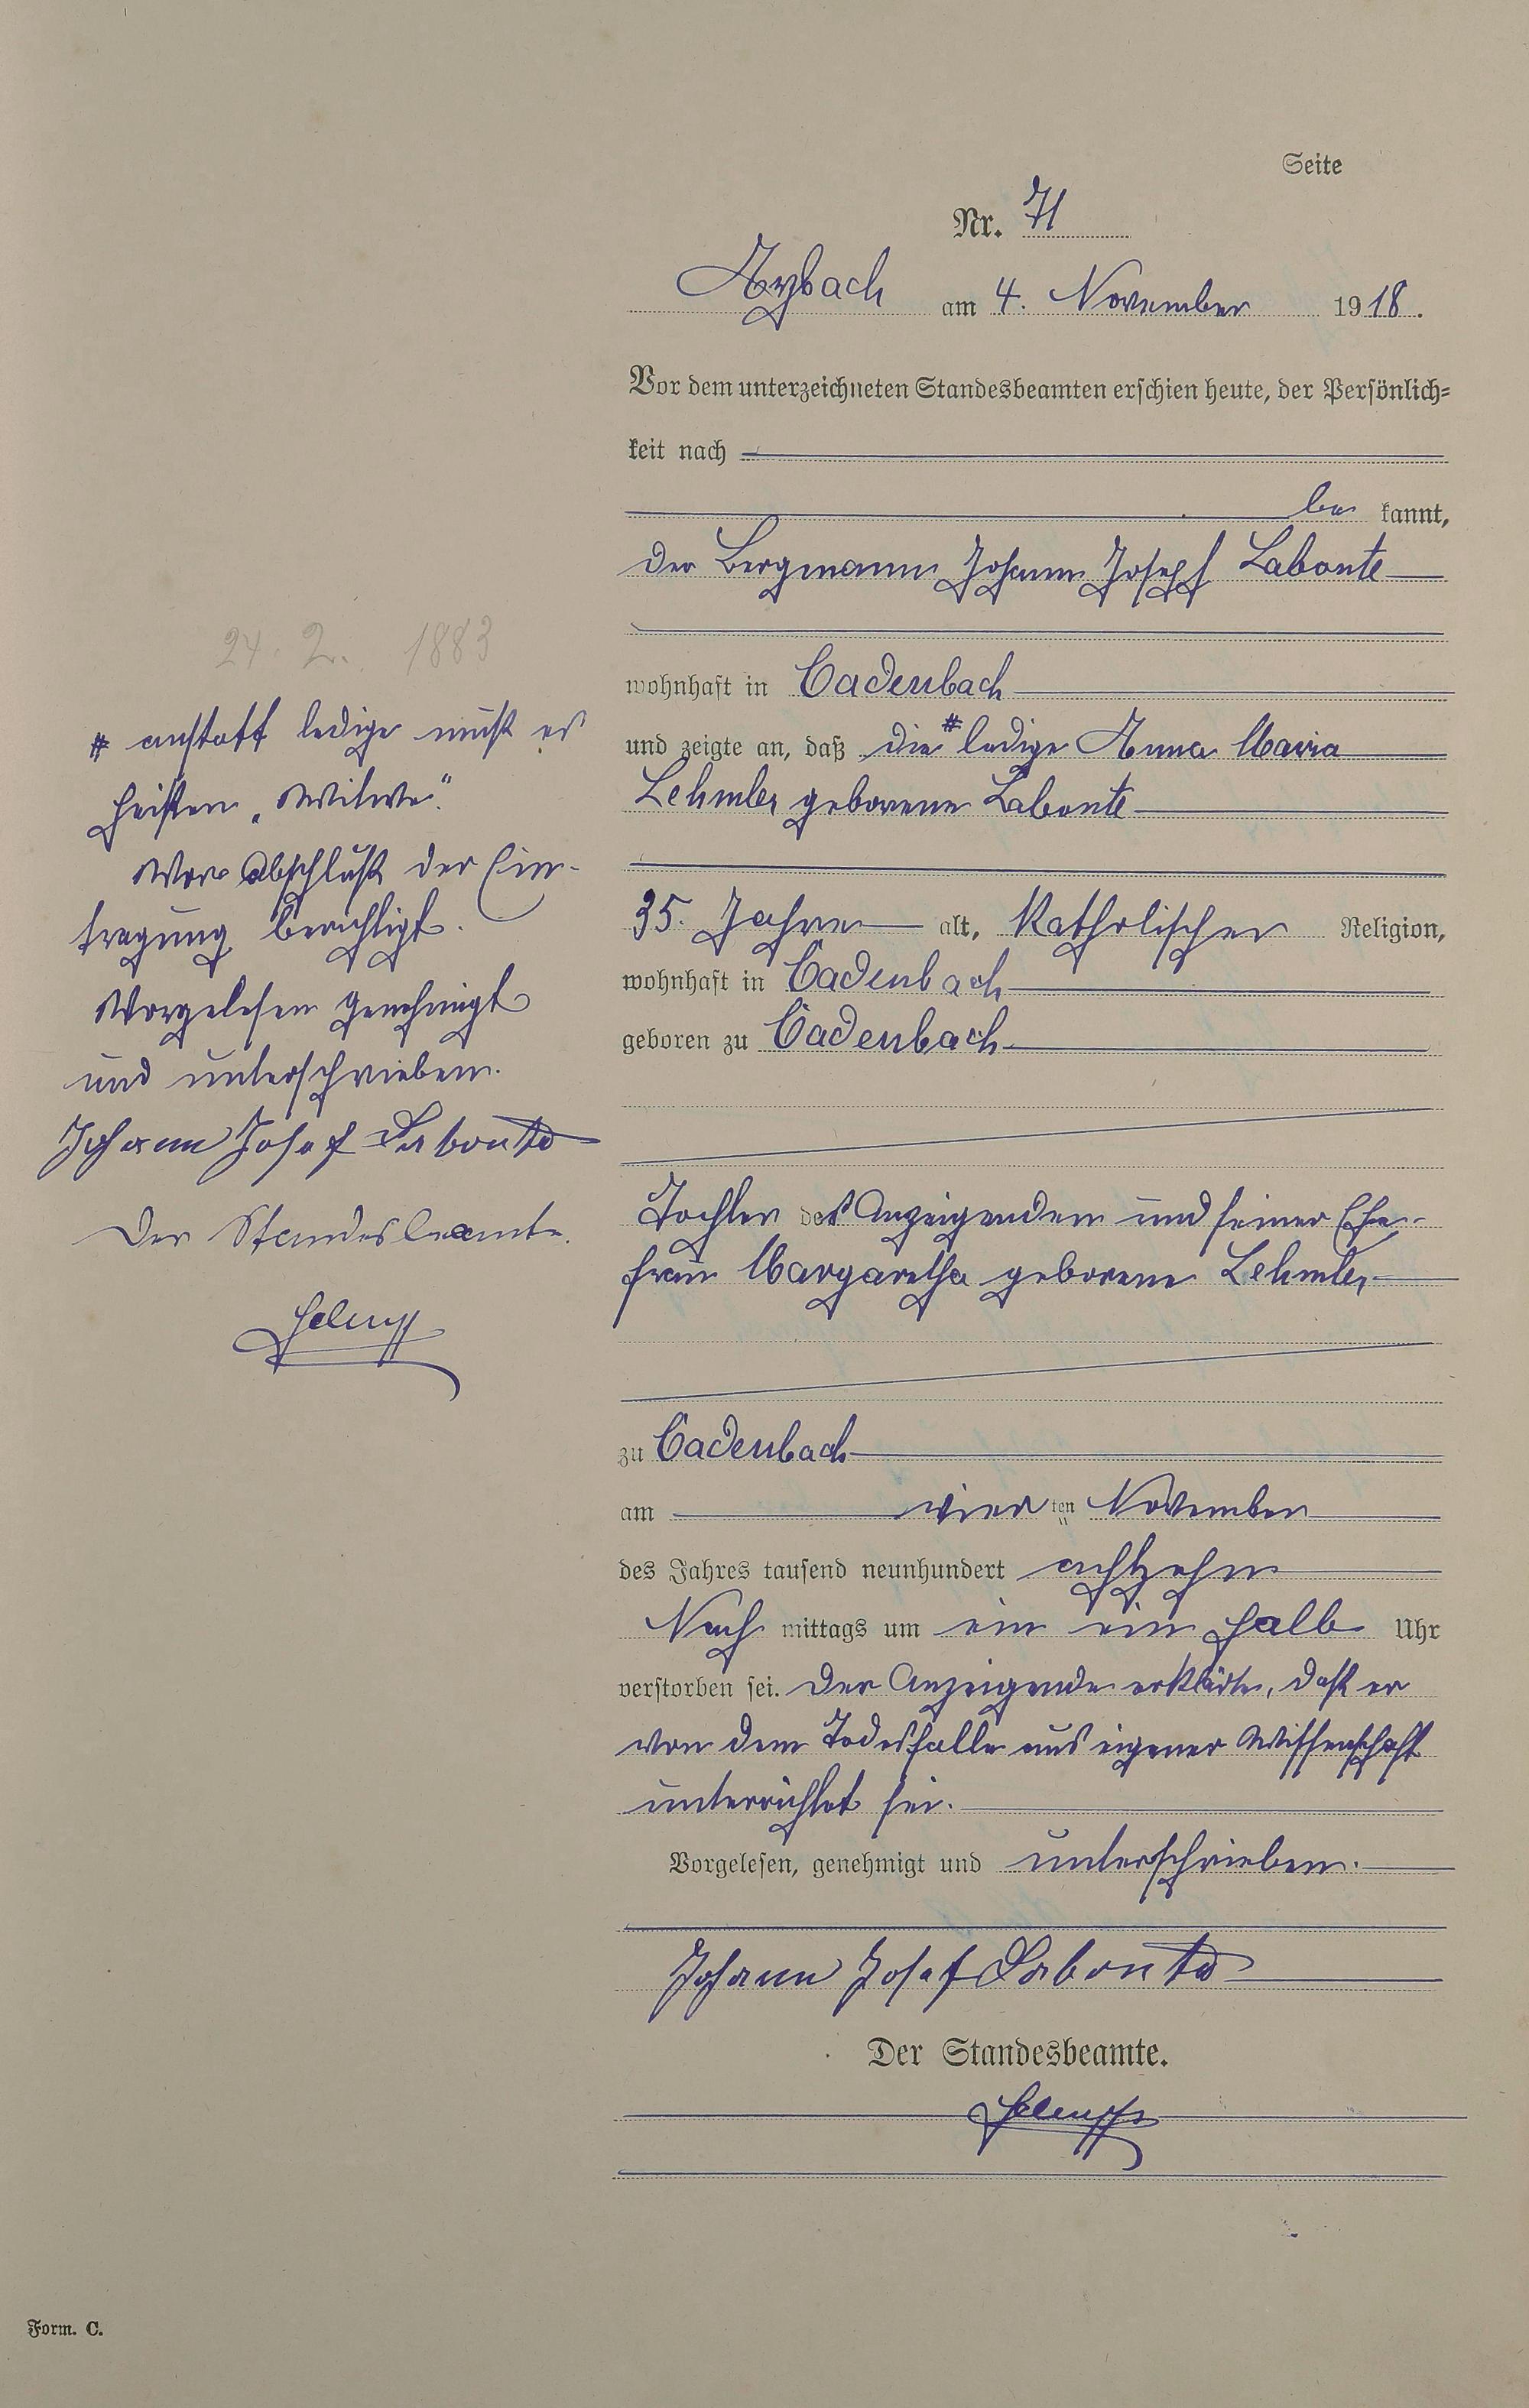 Seite
Nr. 71
Arzbach am 4. November 1918.
Vor dem unterzeichneten Standesbeamten erschien heute, der Persönlich=
keit nach
be kannt,
der Bergmann Johann Joseph Labonte
wohnhaft in Cadenbach
und zeigte an, daß die # ledige Anna Maria
Lehmler geborene Labonte
35 Jahre alt, Katholischer Religion,
wohnhaft in Cadenbach
geboren zu Cadenbach
Tochter des Anzeigenden und seiner Ehe-
frau Margaretha geborene Lehmler
zu Cadenbach
am vier ten November
des Jahres tausend neunhundert achtzehn
Nach mittags um ein ein halb Uhr
verstorben sei. Der Anzeigende erklärte, daß er
von dem Todesfalle aus eigener Wissenschaft
unterrichtet sei.
Vorgelesen, genehmigt und unterschrieben.
Johann Josef Labonte
Der Standesbeamte.
24. 2. 1883
# anstatt ledige muß es
heißen „Witwe“.
Vor Abschluß der Ein-
tragung berichtigt.
Vorgelesen genehmigt
und unterschrieben.
Johann Josef Labonte
Der Standesbeamte.
Form. C.